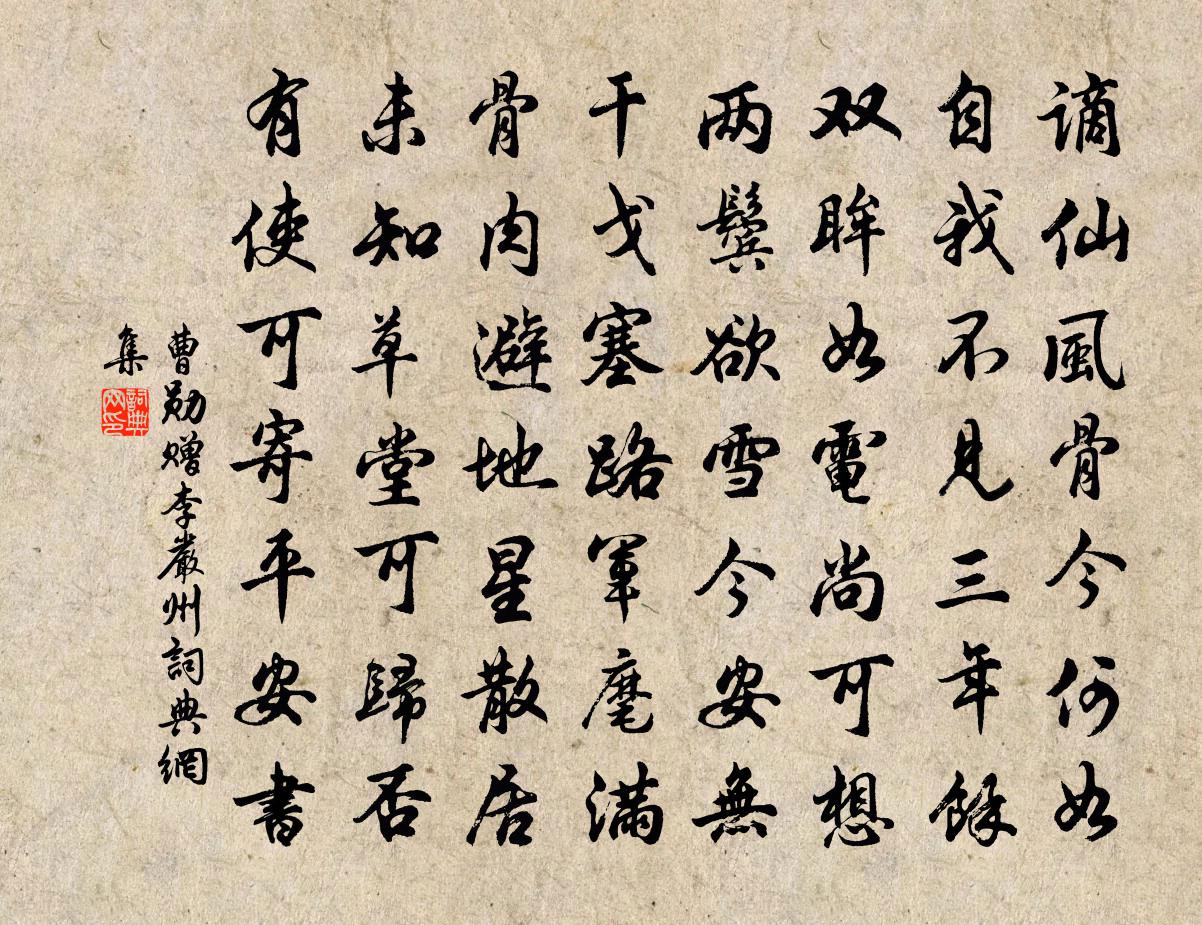 謫仙風骨今何如
自我不見三年餘
双眸如電尚可想
两鬓欲雪今安無
干戈塞路軍麾滿
骨肉避地星散居
未知草堂可歸否
有使可寄平安書
曹勛赠李嚴州詞典網
集
詞典
网印